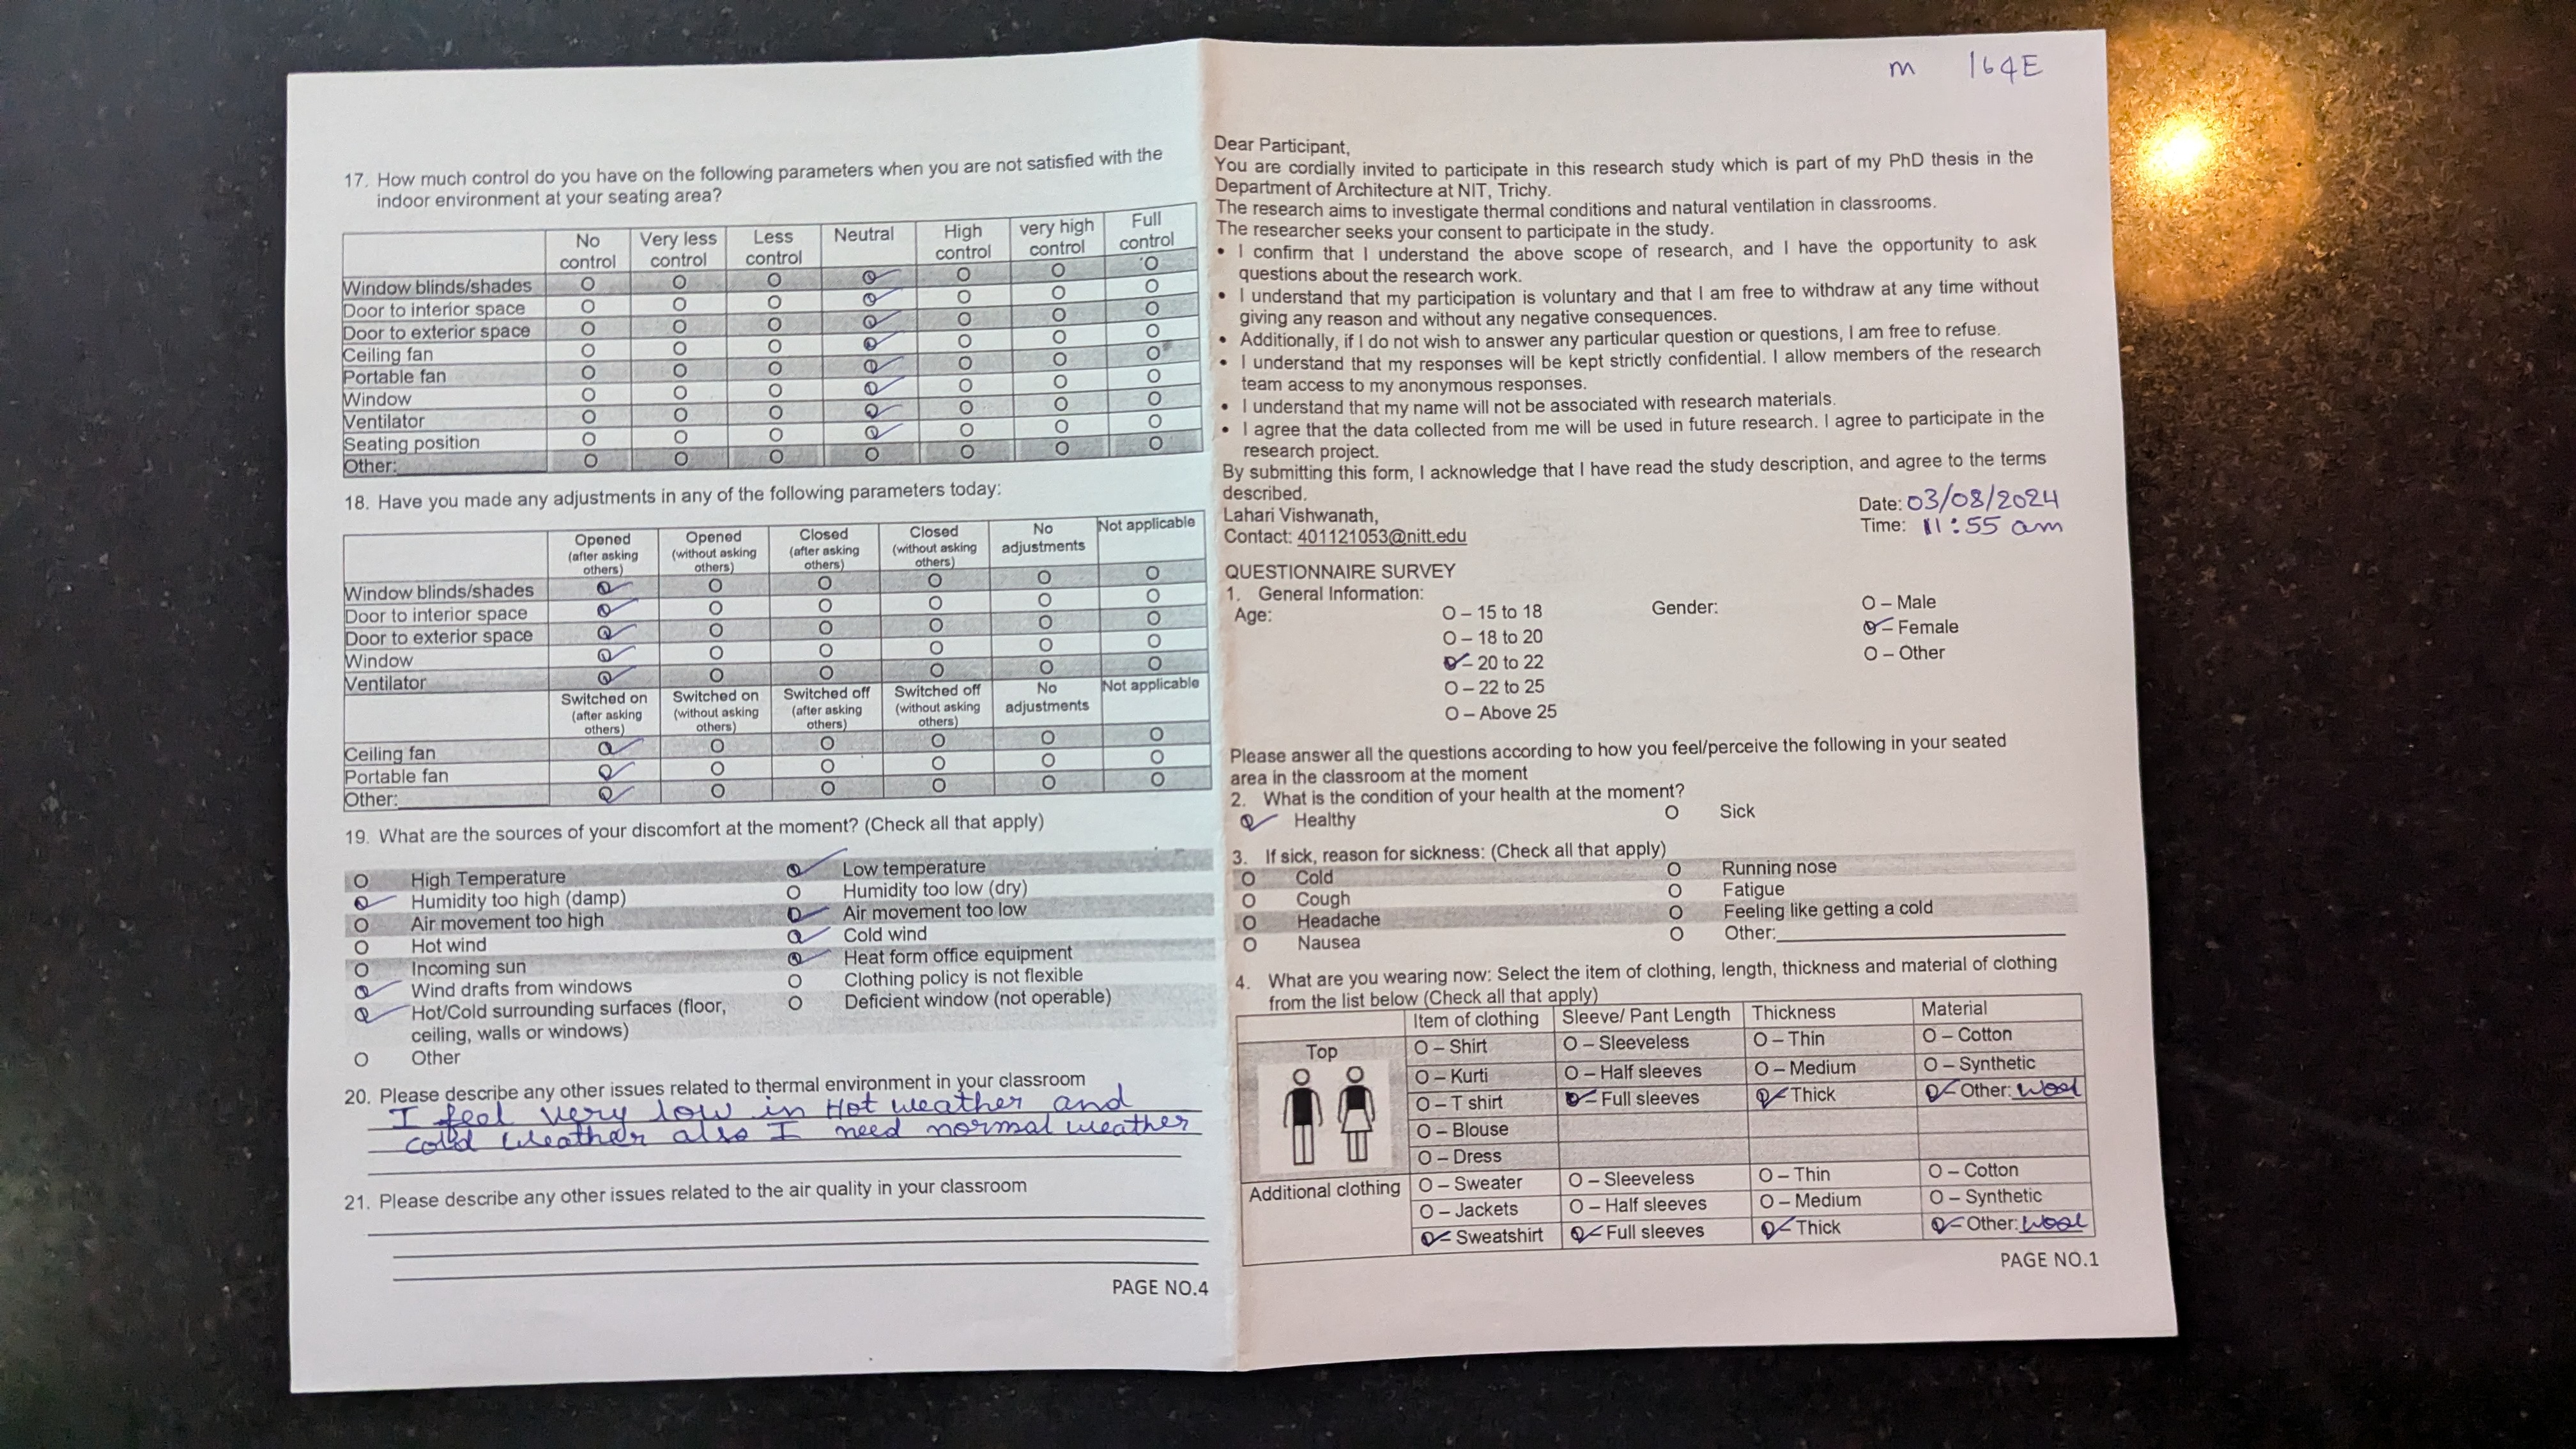 17. How much control do you have on the following parameters when you are not satisfied with the
indoor environment at your seating area?
No control Very less control Less control Neutral High control very high control Full control
Window blinds/shades O O O O O O O
Door to interior space O O O O O O O
Door to exterior space O O O O O O O
Ceiling fan O O O O O O O
Portable fan O O O O O O O
Window O O O O O O O
Ventilator O O O O O O O
Seating position O O O O O O O
Other: O O O O O O O
18. Have you made any adjustments in any of the following parameters today:
Opened (after asking others) Opened (without asking others) Closed (after asking others) Closed (without asking others) No adjustments Not applicable
Window blinds/shades O O O O O O
Door to interior space O O O O O O
Door to exterior space O O O O O O
Window O O O O O O
Ventilator O O O O O O
Switched on (after asking others) Switched on (without asking others) Switched off (after asking others) Switched off (without asking others) No adjustments Not applicable
Ceiling fan O O O O O O
Portable fan O O O O O O
Other: O O O O O O
19. What are the sources of your discomfort at the moment? (Check all that apply)
O High Temperature O Low temperature
O Humidity too high (damp) O Humidity too low (dry)
O Air movement too high O Air movement too low
O Hot wind O Cold wind
O Incoming sun O Heat form office equipment
O Wind drafts from windows O Clothing policy is not flexible
O Hot/Cold surrounding surfaces (floor, O Deficient window (not operable)
ceiling, walls or windows)
O Other
20. Please describe any other issues related to thermal environment in your classroom
I feel very low in Hot weather and
cold weather also I need normal weather
21. Please describe any other issues related to the air quality in your classroom
PAGE NO.4
m 164E
Dear Participant,
You are cordially invited to participate in this research study which is part of my PhD thesis in the
Department of Architecture at NIT, Trichy.
The research aims to investigate thermal conditions and natural ventilation in classrooms.
The researcher seeks your consent to participate in the study.
• I confirm that I understand the above scope of research, and I have the opportunity to ask
questions about the research work.
• I understand that my participation is voluntary and that I am free to withdraw at any time without
giving any reason and without any negative consequences.
• Additionally, if I do not wish to answer any particular question or questions, I am free to refuse.
• I understand that my responses will be kept strictly confidential. I allow members of the research
team access to my anonymous responses.
• I understand that my name will not be associated with research materials.
• I agree that the data collected from me will be used in future research. I agree to participate in the
research project.
By submitting this form, I acknowledge that I have read the study description, and agree to the terms
described.
Lahari Vishwanath,
Contact: 401121053@nitt.edu
Date: 03/08/2024
Time: 11:55 am
QUESTIONNAIRE SURVEY
1. General Information:
Age: O – 15 to 18 Gender: O – Male
O – 18 to 20 O – Female
O – 20 to 22 O – Other
O – 22 to 25
O – Above 25
Please answer all the questions according to how you feel/perceive the following in your seated
area in the classroom at the moment
2. What is the condition of your health at the moment?
O Healthy O Sick
3. If sick, reason for sickness: (Check all that apply)
O Cold O Running nose
O Cough O Fatigue
O Headache O Feeling like getting a cold
O Nausea O Other:
4. What are you wearing now: Select the item of clothing, length, thickness and material of clothing
from the list below (Check all that apply)
Item of clothing Sleeve/ Pant Length Thickness Material
Top O – Shirt O – Sleeveless O – Thin O – Cotton
O – Kurti O – Half sleeves O – Medium O – Synthetic
O – T shirt O – Full sleeves O – Thick O – Other: Wool
O – Blouse
O – Dress
Additional clothing O – Sweater O – Sleeveless O – Thin O – Cotton
O – Jackets O – Half sleeves O – Medium O – Synthetic
O – Sweatshirt O – Full sleeves O – Thick O – Other: Wool
PAGE NO.1